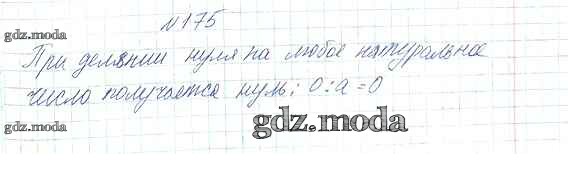 №175
gdz.moda
При делении нуля на любое натуральное
число получается нуль; 0:a=0
gdz.moda
gdz.moda